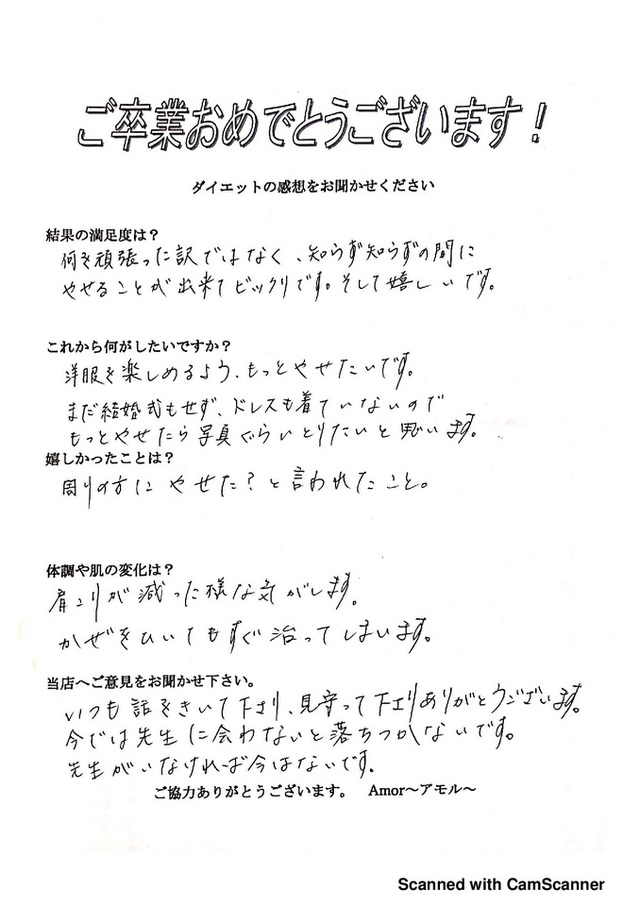 ご卒業おめでとうございます！
ダイエットの感想をお聞かせください
結果の満足度は？
何を頑張った訳ではなく、知らず知らずの間に
やせることが出来てビックリです。そして嬉しいです。
これから何がしたいですか？
洋服を楽しめるよう、もっとやせたいです。
まだ結婚式もせず、ドレスも着ていないので
もっとやせたら写真ぐらいとりたいと思います。
嬉しかったことは？
周りの方に やせた？と言われたこと。
体調や肌の変化は？
肩こりが減った様な気がします。
かぜをひいてもすぐ治ってしまいます。
当店へご意見をお聞かせ下さい。
いつも話をきいて下さり、見守って下さりありがとうございます。
今では先生に会わないと落ちつかないです。
先生がいなければ今はないです。
ご協力ありがとうございます。 Amor～アモル～
Scanned with CamScanner